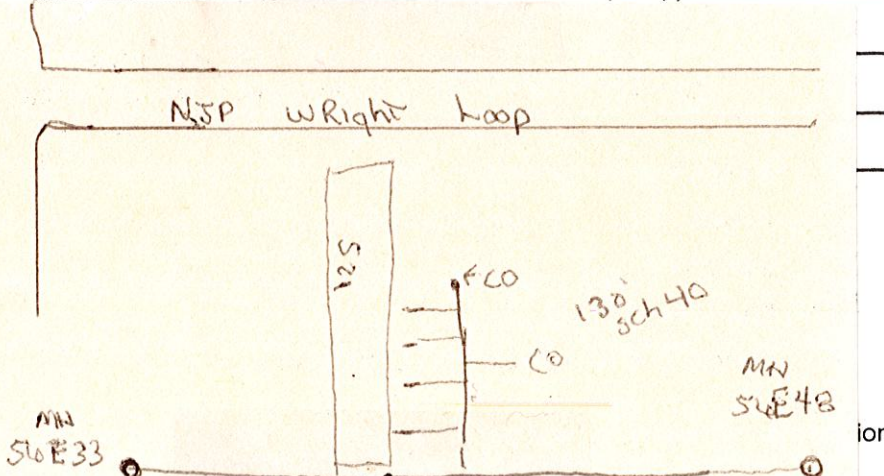 NJP WRight Loop
125
CO
130'
sch 40
CO
MN
54E48
MN
54E33
ion